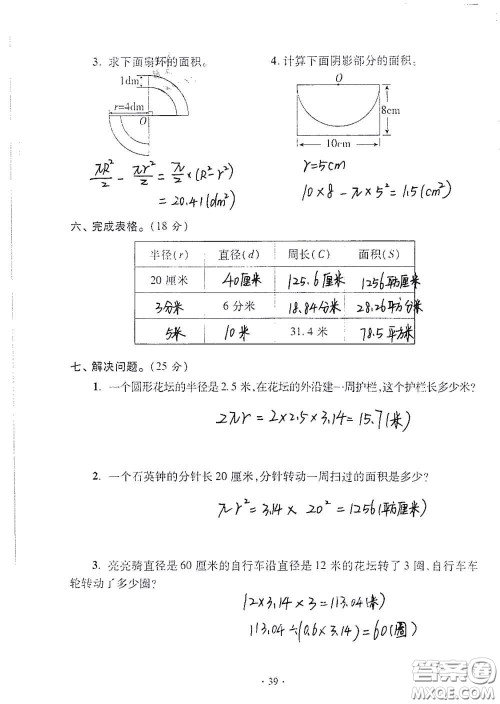 3. 求下面扇环的面积。
1dm
r=4dm
O
πR²/2 - πr²/2 = π/2×(R²-r²)
= 20.41(dm²)
4. 计算下面阴影部分的面积:
O
8cm
10cm
r=5cm
10×8-π×5²=1.5(cm²)
六、完成表格。(18 分)
半径(r) 直径(d) 周长(C) 面积(S)
20 厘米 40厘米 125.6厘米 1256平方厘米
3分米 6 分米 18.84分米 28.26平方分米
5米 10米 31.4 米 78.5平方米
七、解决问题。(25 分)
1. 一个圆形花坛的半径是 2.5 米,在花坛的外沿建一周护栏,这个护栏长多少米?
2πr=2×2.5×3.14=15.7(米)
2. 一个石英钟的分针长 20 厘米,分针转动一周扫过的面积是多少?
πr²=3.14×20²=1256(平方厘米)
3. 亮亮骑直径是 60 厘米的自行车沿直径是 12 米的花坛转了 3 圈,自行车车
轮转动了多少圈?
12×3.14×3=113.04(米)
113.04÷(0.6×3.14)=60(圈)
· 39 ·
答案圈
MXQE.COM